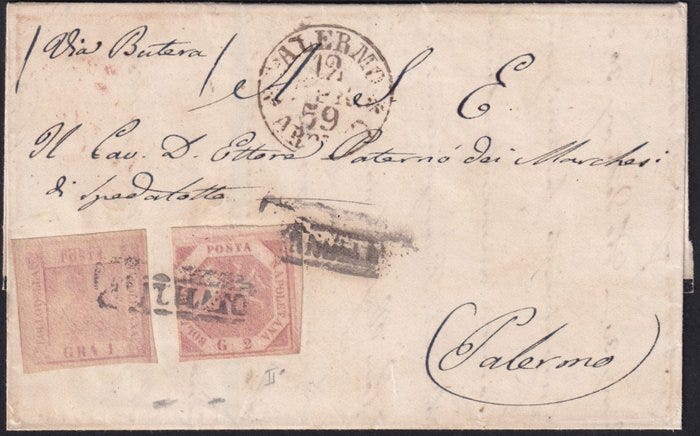 Via Butera
PALERMO
12
59
A S E
Il Cav. D. Ettore Paternò dei Marchesi
di Spedalotto
POSTA
GRA 1
POSTA
NAPOLETANA
BOL
G 2
ANNULLATO
II
Palermo